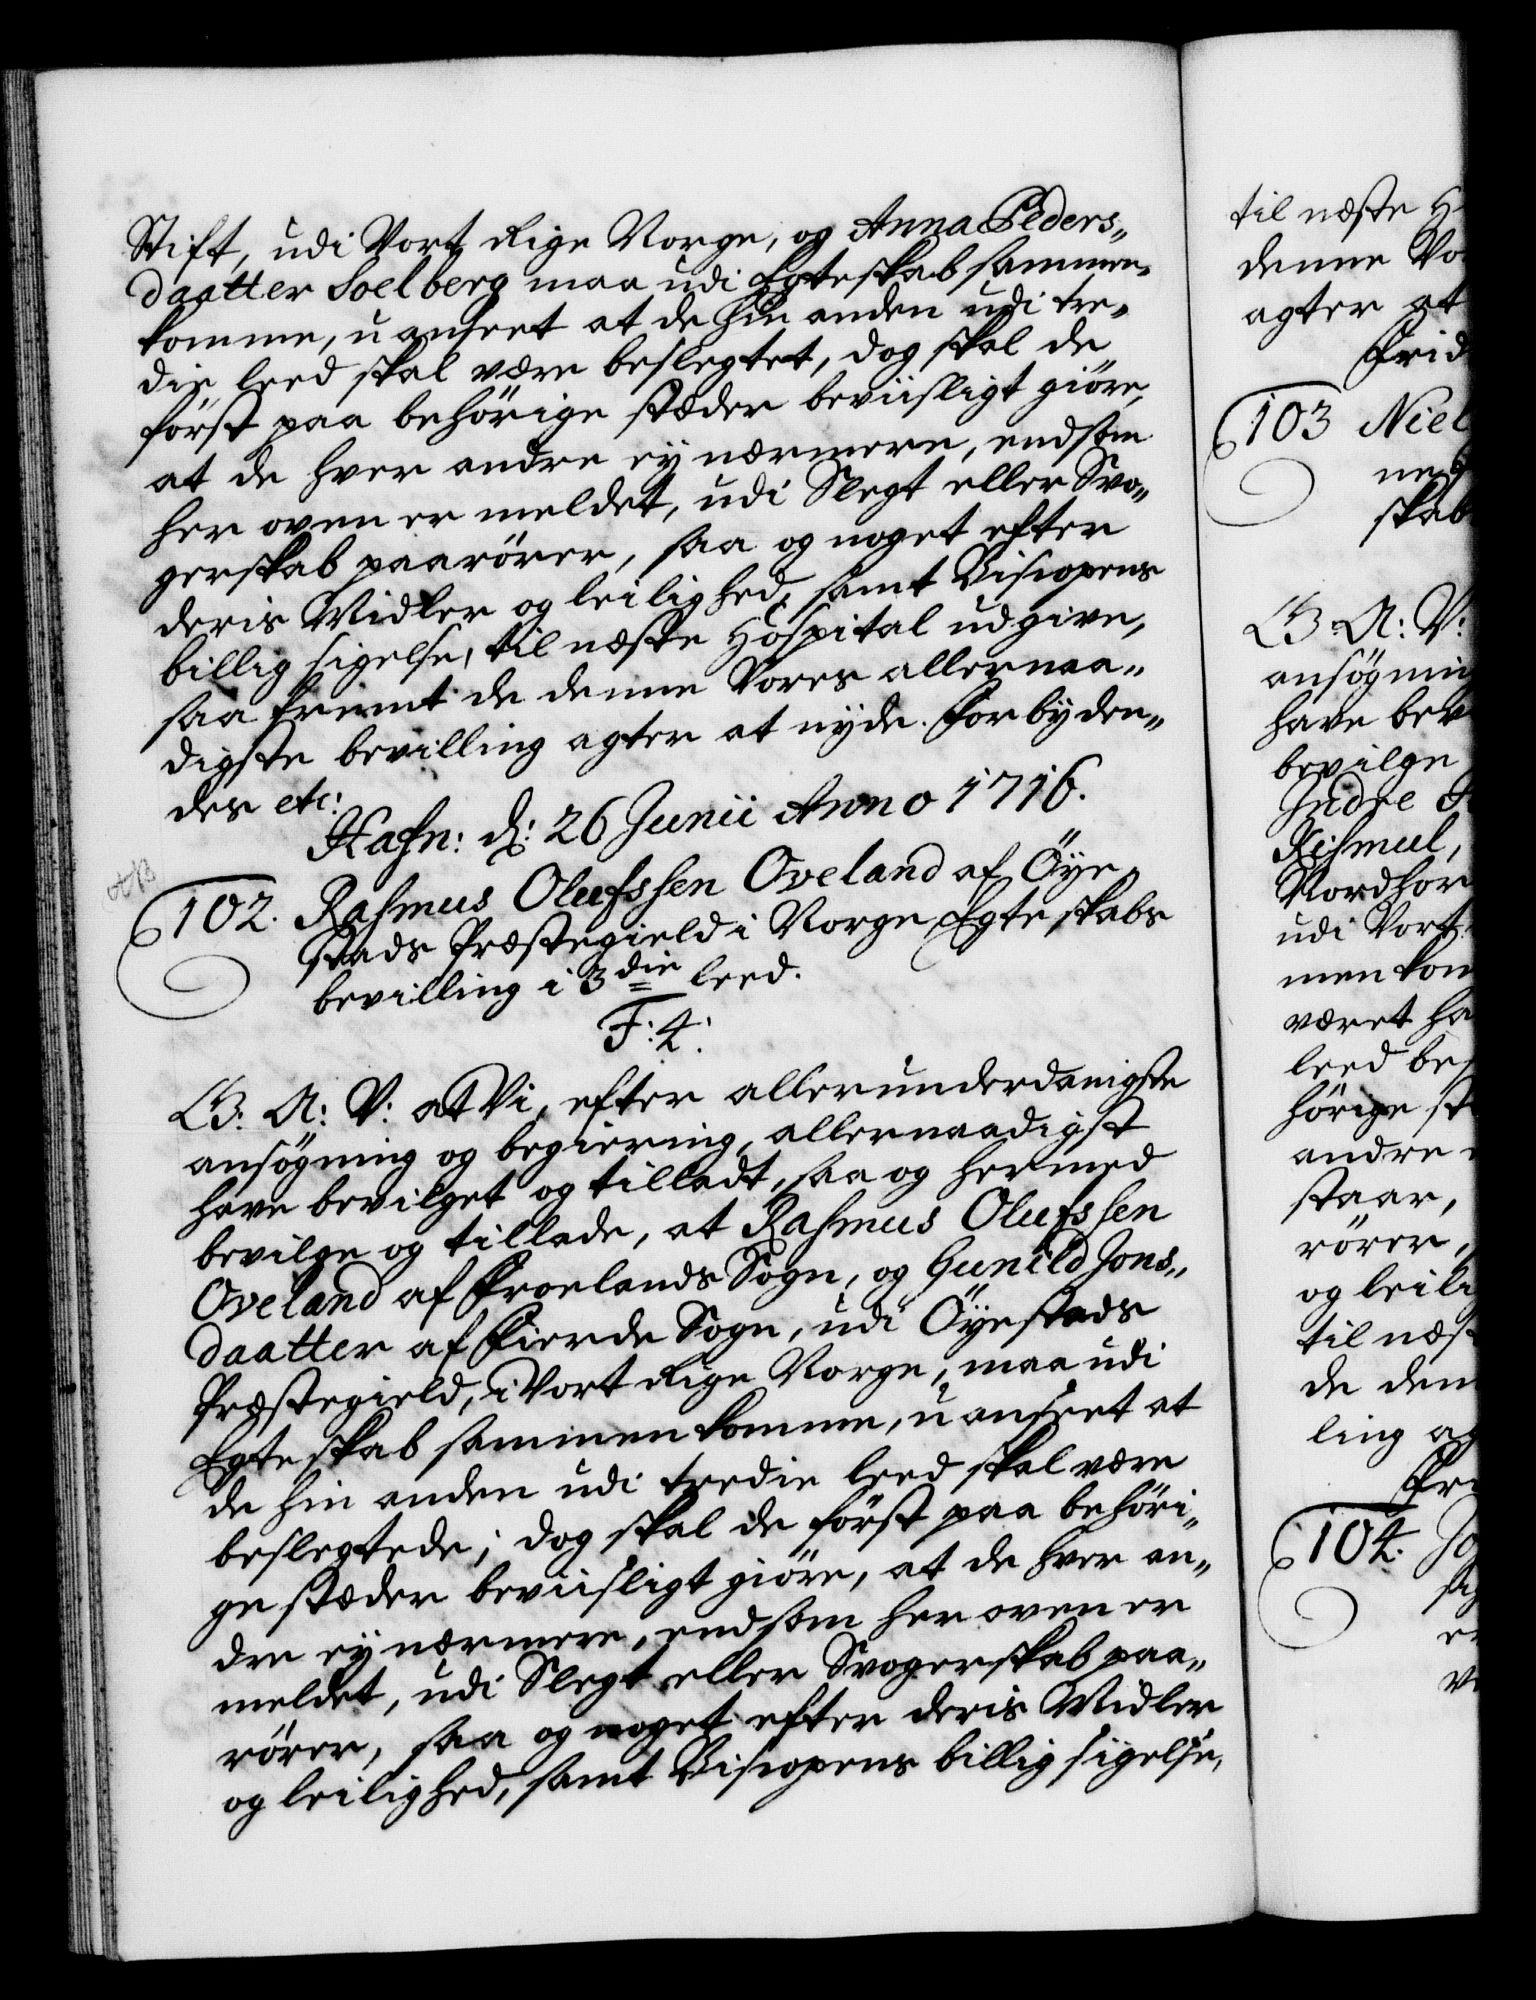 Stift, udi Vort Rige Norge, og Anna Peders„
daatter Soelberg maa udi Egteskab sammen„
komme, uanseet at de hin anden udi tre„
die leed skal være beslegtet, dog skal de
först paa behörige stæder beviisligt giöre,
at de hver andre ey nærmere, end som
her oven er meldet, udi Slegt eller Svo„
gerskab paarörer, saa og noget efter
deris Midler og leilighed, samt Biscopens
billig sigelse, til næste Hospital udgive,
saa fremt de denne Vores allernaa„
digste bevilling agter at nyde. Forbyden„
des etc:
Hafn: d: 26 Junii Anno 1716.
102. Rasmus Olufssen Oveland af Öye„
stads Præstegield i Norge Egteskabs
bevilling i 3die leed.
F: 4:
G: A: V: at Vi, efter allerunderdanigste
ansögning og begiering, allernaadigst
have bevilget og tilladt, saa og hermed
bevilge og tillade, at Rasmus Olufssen
Oveland af Froelands Sogn, og Gunild Jons„
daatter af Fierde Sogn, udi Öyestads
Præstegield, i Vort Rige Norge, maa udi
Egteskab sammenkomme, uanseet at
de hin anden udi tredie leed skal være
beslegtede; dog skal de först paa behöri„
ge stæder beviisligt giöre, at de hver an„
dre ey nærmere, end som her oven er
meldet, udi Slegt eller Svogerskab paa„
rörer, saa og noget efter deris Midler
og leilighed, samt Biscopens billig sigelse,
til næste
denne
agter at
103 Niel
skab
G: A: V:
ansögning
have bev
bevilge
Indre
Rismul,
Nordhor
udi Vort
men kom
været ha
leed be
hörige st
andre
staar,
rörer,
og leili
til næs
de den
ling ag
104. Jo